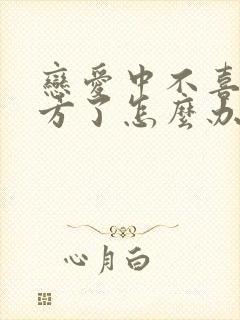 戀愛中不喜
方了怎麼办
心月白